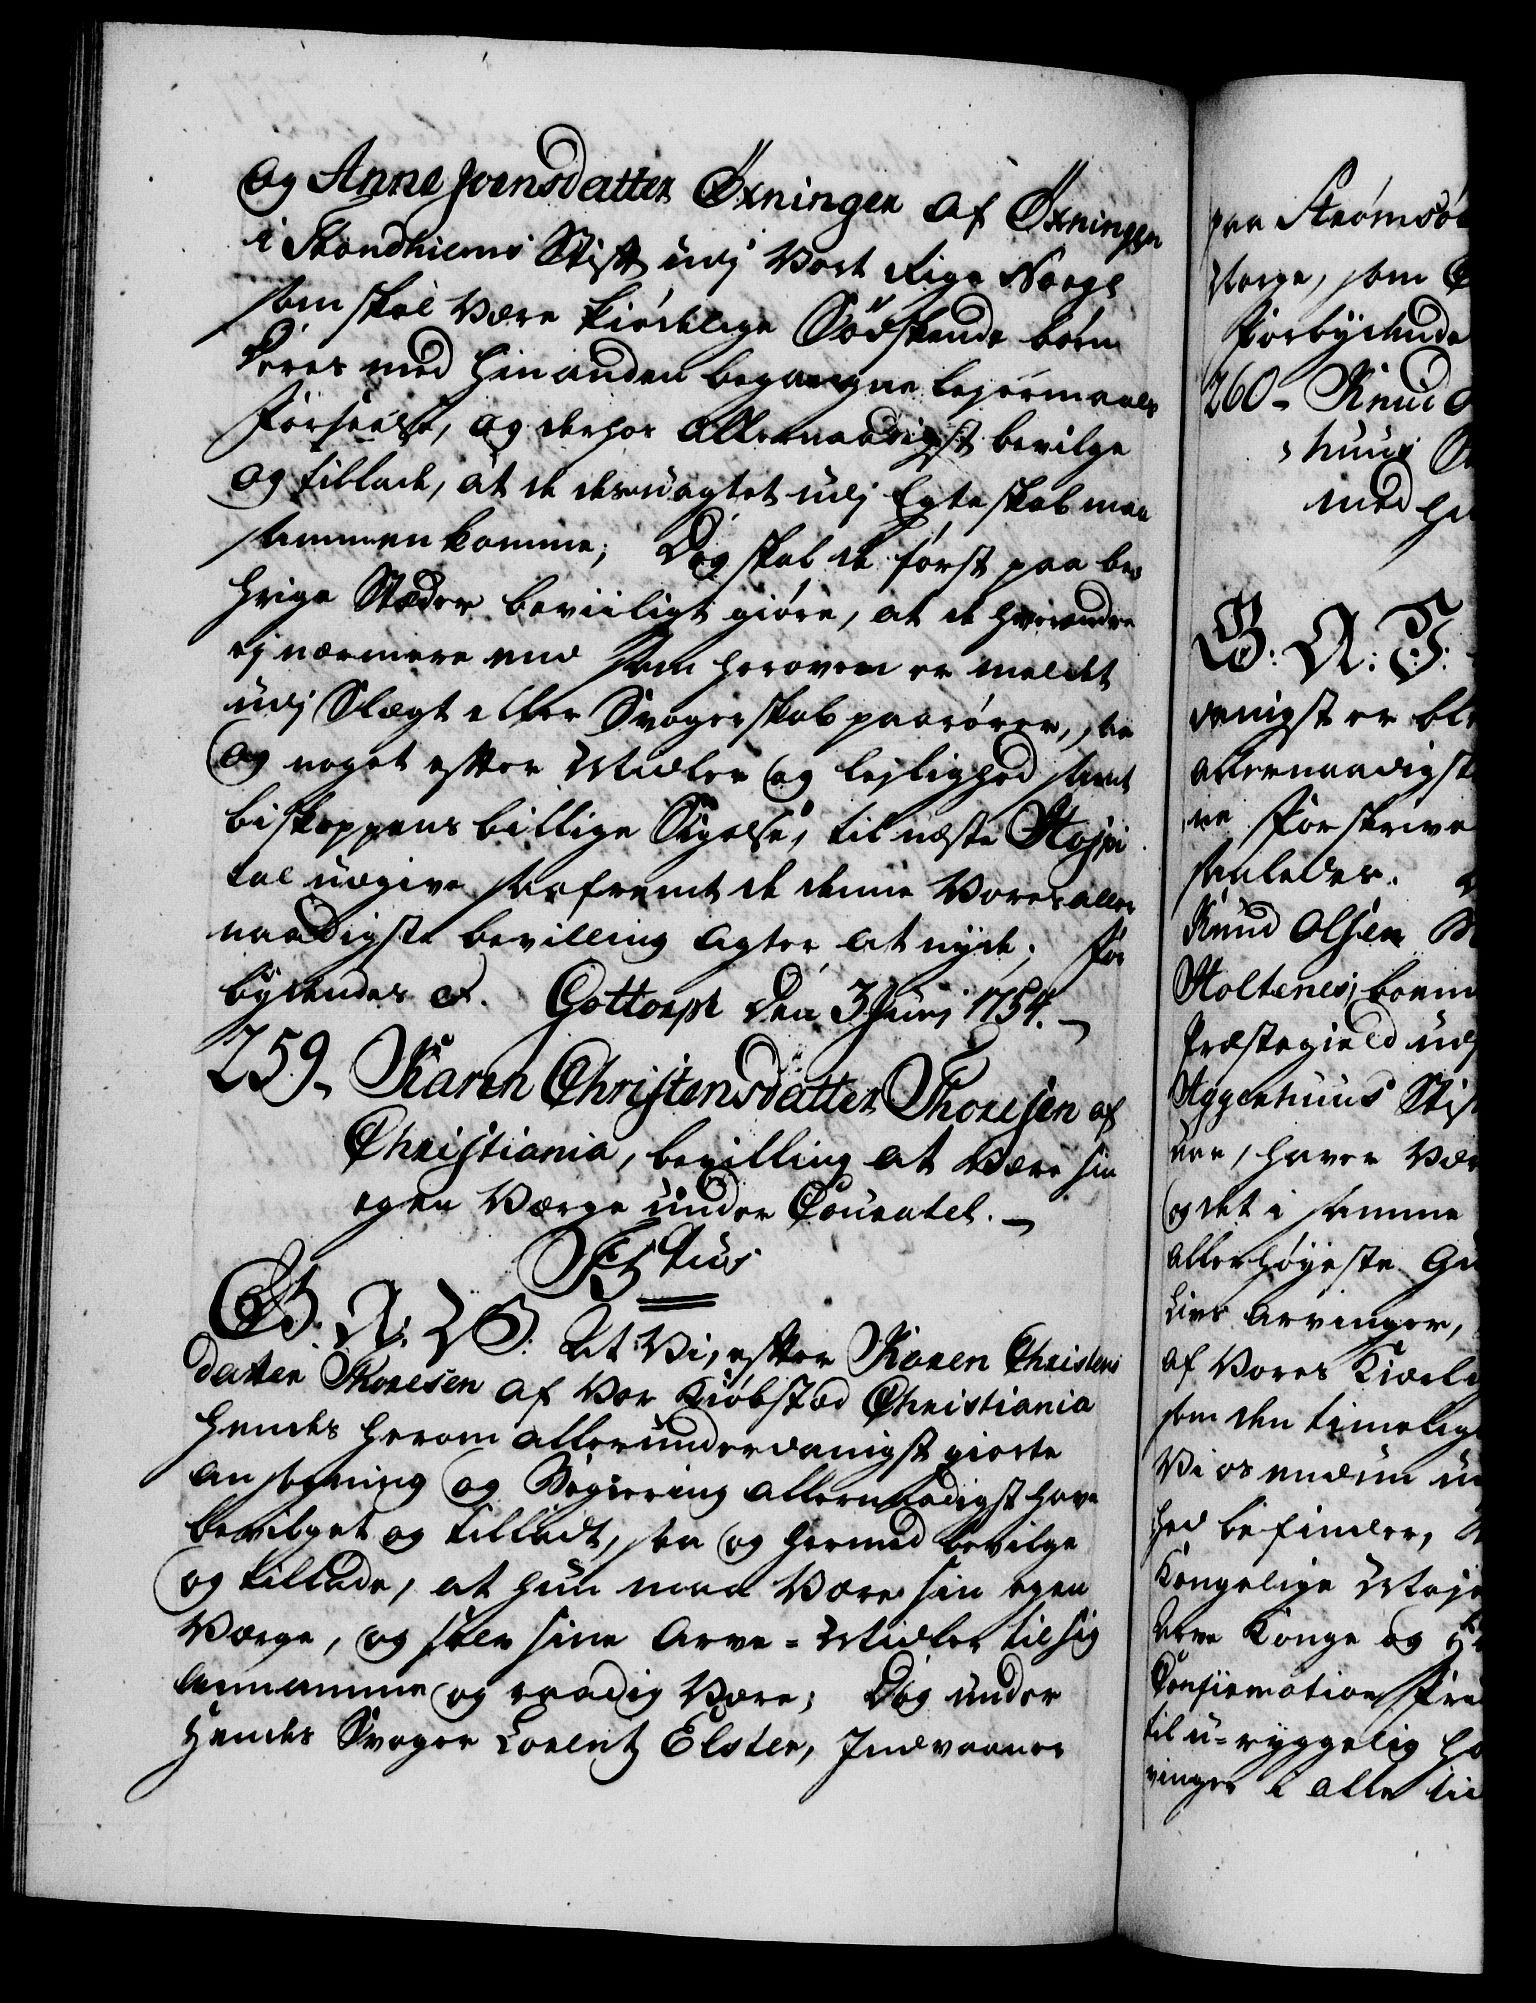 og Anne Joensdatter Öxningen af Öxningen
i Trondhiems Stift udj Vort Rige Norge
som skal være kiödelige Södskende børn
deres med hinanden begangne lejermaals
Forseelse, og derhos allernaadigst bevilge
og tillade, at de desuagtet udj Egteskab maa
sammenkomme; Dog skal de først paa be-
hørige Stæder beviisligt giøre, at de hverandre
ej nærmere end som heroven er meldet
udj Slægt eller Svogerskab paarører, saa
og noget efter Midler og lejlighed samt
biskoppens billige Sigelse, til næste Hospi-
tal udgive saafremt de denne Vores aller-
naadigste bevilling agter at nyde; For-
bydendes &. Gottorph den 3 Junj 1754.
259. Karen Christensdatter Thoresen af
Christiania, bevilling at være sin
egen Værge under Couratel.
Fr: 5tus
G: A: V: G: At Vi, efter Karen Christens-
datter Thoresen af Vor Kiøbstad Christiania
hendes herom allerunderdanigst giorte
ansøgning og Begiering allernaadigst have
bevilget og tilladt, saa og hermed bevilge
og tillade, at hun maa være sin egen
Værge, og selv sine Arve-Midler til sig
annamme og raadig være; Dog under
hendes Svoger Lorentz Elster, Indvaaner
paa Strømsø
Værge, som
Forbydende
260 - Knud O
huus S
med h
G: A: V:
danigst er bl
allernaadigst
ne Forskreve
saaledes.
Knud Olsen
Holtenes, boen
Præstegield udj
Aggerhuus Stif
haver
og det i samme
Allerhøyeste Gu
Livs Arvinger,
af Vores Kiærl
som den timelig
Vi os endnu u
hed befinder,
Kongelige Maje
Arve Konge og H
Confirmation Fre
til u-ryggelig h
vinger i alle ti